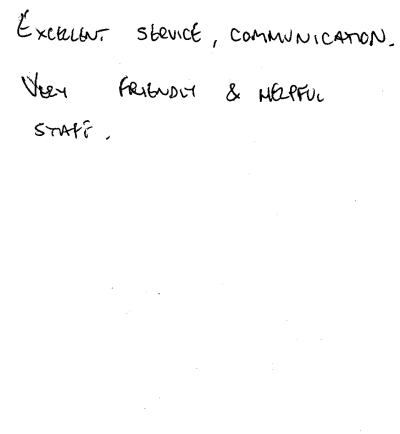 EXCELLENT SERVICE, COMMUNICATION.
VERY FRIENDLY & HELPFUL
STAFF.